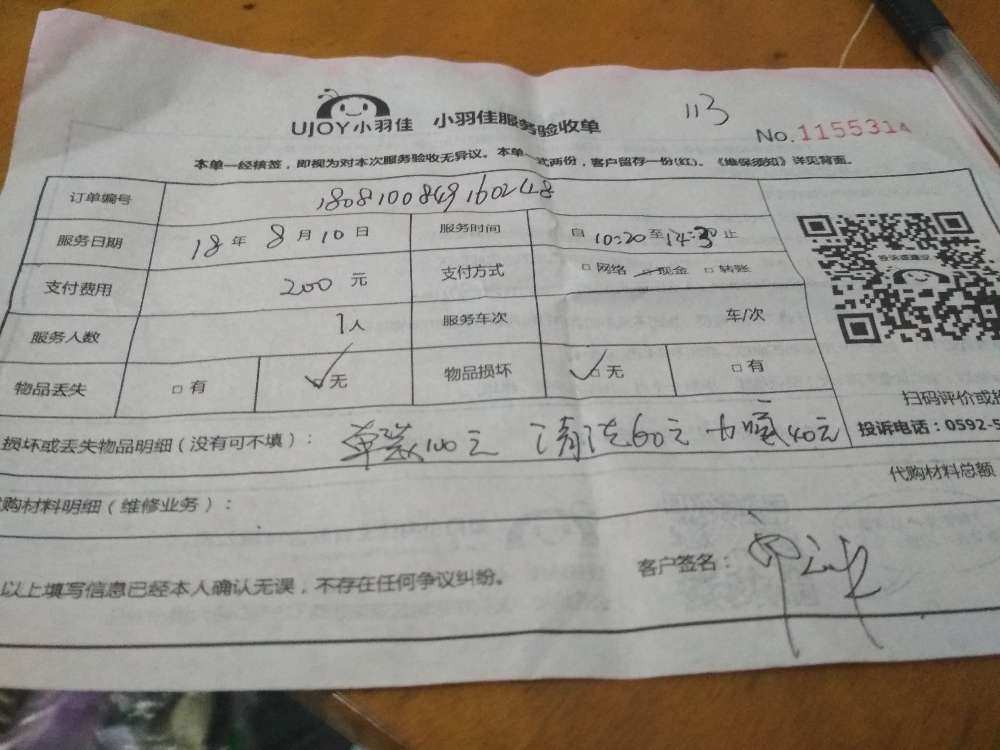 113
UJOY小羽佳 小羽佳服务验收单
No.1155314
本单一经核签，即视为对本次服务验收无异议。本单一式两份，客户留存一份(红)。《维保须知》详见背面。
订单编号 1808100849160248
服务日期 18年8月10日 服务时间 自10:20至14:30止
投诉或建议
支付费用 200元 支付方式 □网络 □现金 □转账
服务人数 1人 服务车次 车/次
物品丢失 □有 □无 物品损坏 □无 □有
扫码评价或
损坏或丢失物品明细（没有可不填）： 100元 清洗60元 40元
投诉电话：0592-5
代购材料总额
购材料明细（维修业务）：
以上填写信息已经本人确认无误，不存在任何争议纠纷。 客户签名：